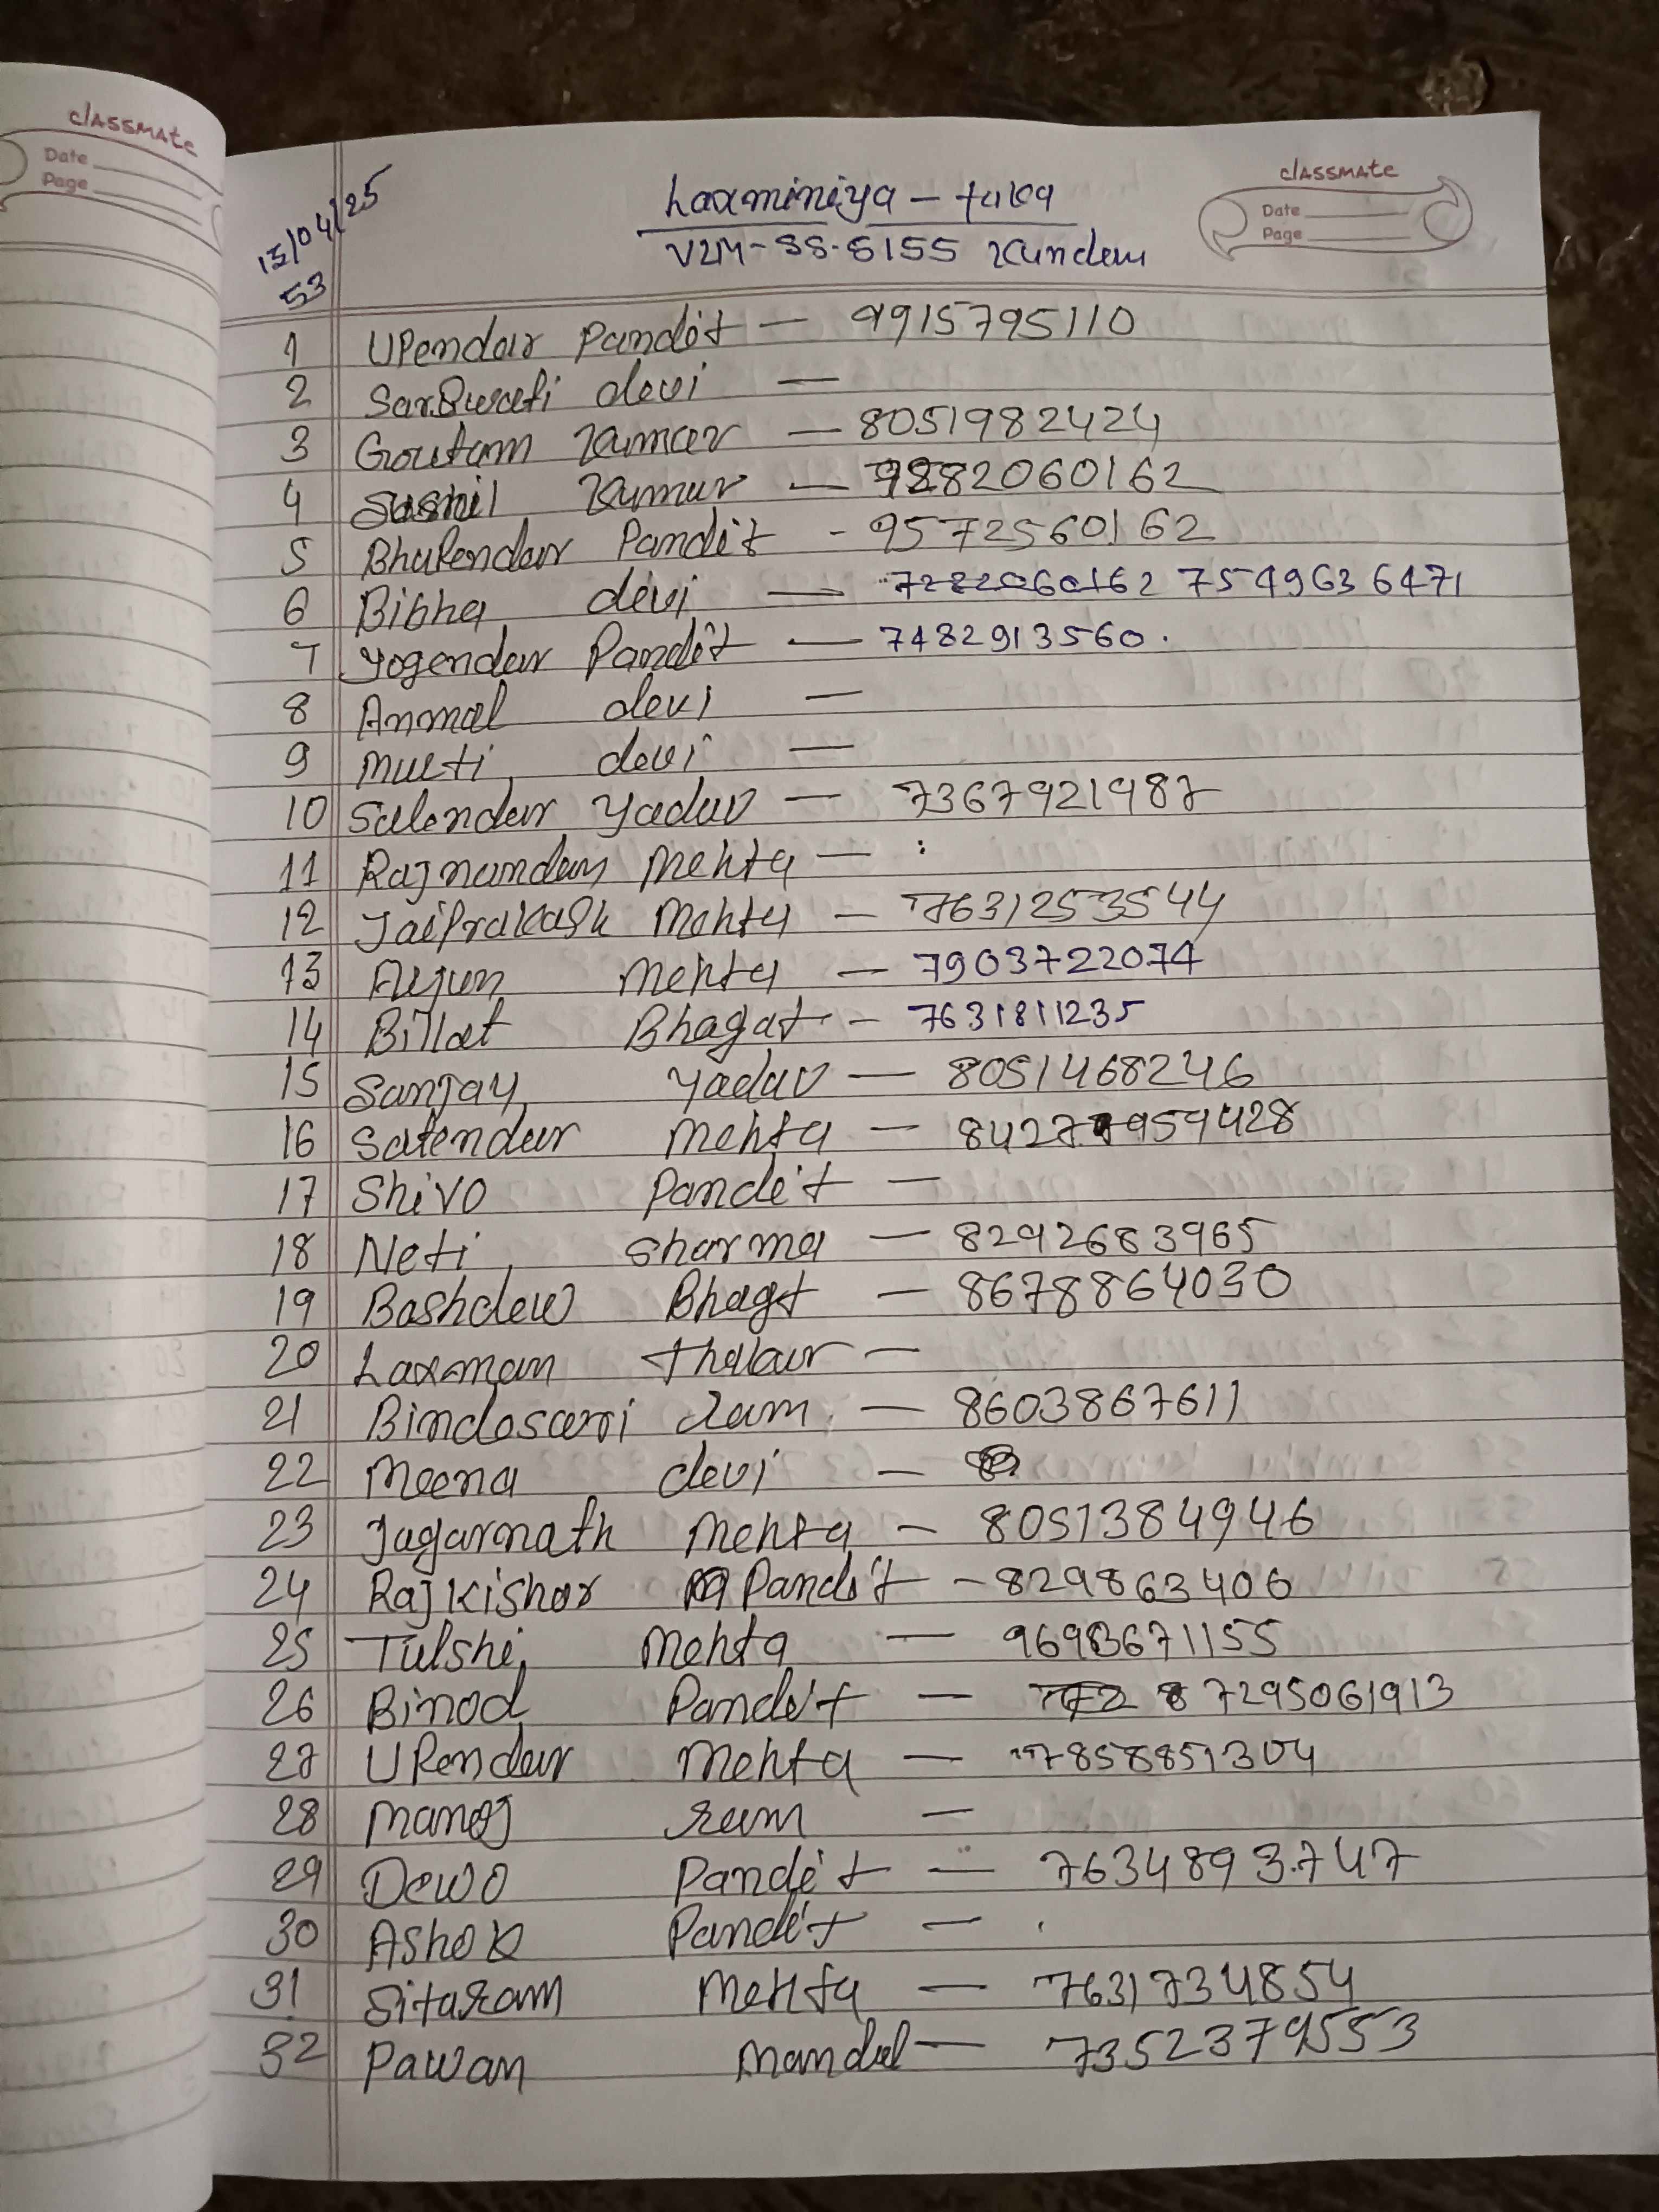 classmate
Date
Page
classmate
Date
Page
15/04/25
53
Laxminiya - tola
Kundan
1 Upendar Pandit — 9915795110
2 Sarswati devi —
3 Goutam Kumar — 8051982424
4 Sushil Kumar —
5 Bhupendar Pandit - 9572560162
6 Bibha devi — 7282060162 7549636471
7 Yogendar Pandit — 7482913560.
8 Anmol devi —
9 devi —
10 Salendar Yadav — 7367921987
11 Rajnandan Mehta — :
12 Jaiprakash Mehta — 7631253544
13 Arjun Mehta — 7903722074
14 Billat Bhagat - 7631811235
15 Sanjay Yadav — 8051468246
16 Satendar Mehta —
17 Shivo Pandit —
18 Neti Sharma — 8292683965
19 Bashdew Bhagt — 8678864030
20 Laxman thakur —
21 Bindeswri ram — 8603867611
22 Meena devi —
23 Jagarnath Mehta — 8051384946
24 Rajkishor Pandit - 829863406
25 Tulshi Mehta — 9693671155
26 Binod Pandit — 7295061913
27 Upendar Mehta — 7858851304
28 Manoj ram —
29 Dewo Pandit — 7634893747
30 Ashok Pandit —
31 Sitaram Mehta — 7631734854
32 Pawan Mandal — 7352379553